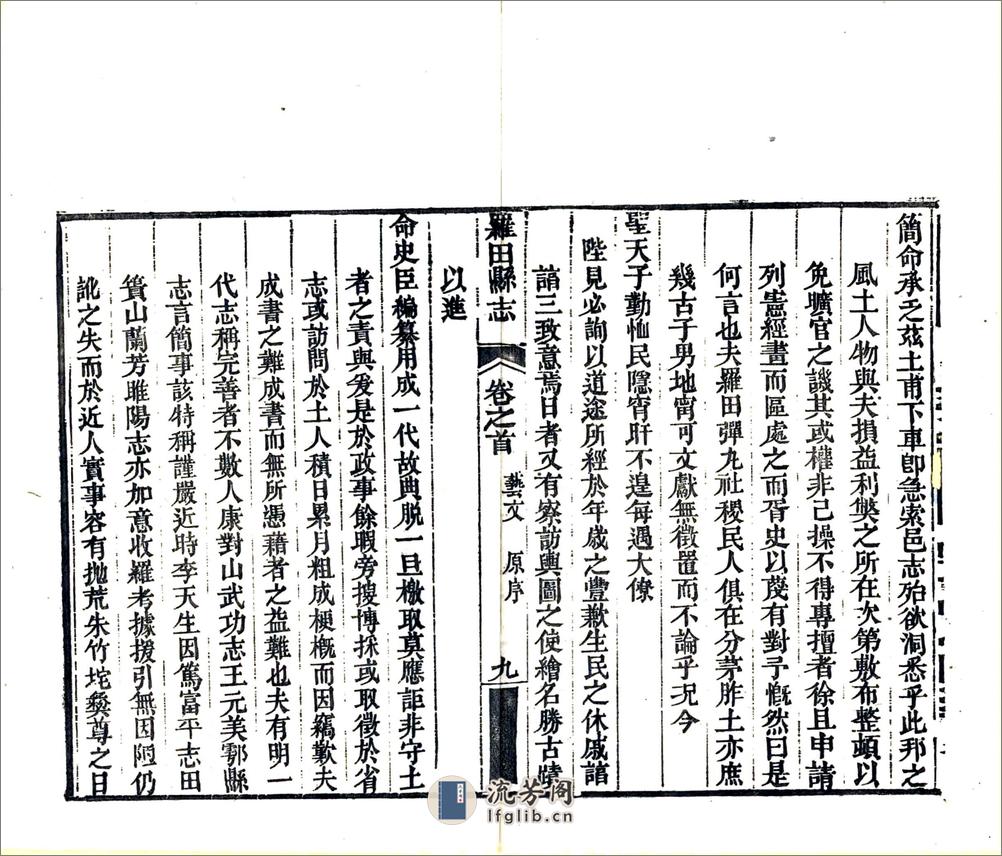 簡命承乏茲土甫下車卽急索邑志殆欲洞悉乎此邦之
風土人物與夫損益利弊之所在次第敷布整頓以
免曠官之譏其或權非己操不得專擅者徐且申請
列憲經畫而區處之而胥史以蔑有對予慨然曰是
何言也夫羅田彈丸社稷民人俱在分茅胙土亦庶
幾古子男地甯可文獻無徵置而不論乎况今
聖天子勤恤民隱宵旰不遑每遇大僚
陛見必詢以道途所經於年歲之豐歉生民之休戚諮
諮三致意焉日者又有察訪輿圖之使繪名勝古蹟
羅田縣志
卷之首
藝文 原序
九
以進
命史臣編纂用成一代故典脫一旦檄取莫應詎非守土
者之責與爰是於政事餘暇旁搜博採或取徵於省
志或訪問於土人積日累月粗成梗概而因竊歎夫
成書之難成書而無所憑藉者之益難也夫有明一
代志稱完善者不數人康對山武功志王元美鄠縣
志言簡事該特稱謹嚴近時李天生因篤富平志田
簣山蘭芳睢陽志亦加意收羅考據援引無因陋仍
訛之失而於近人實事容有拋荒朱竹垞彝尊之日
流芳阁
lfglib.cn